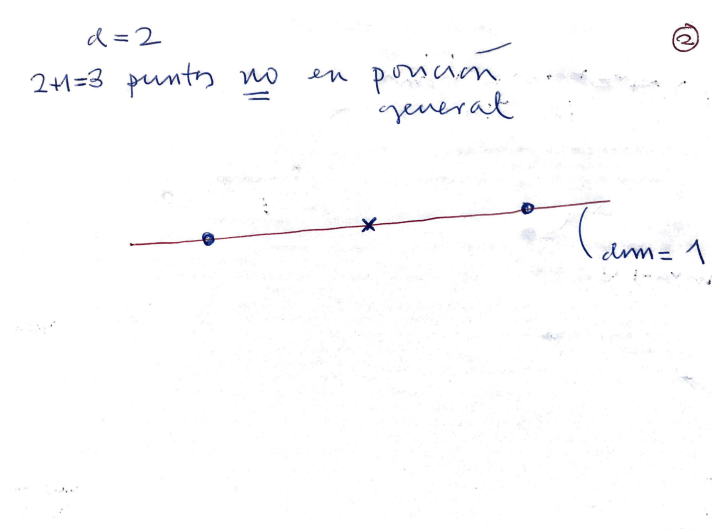 d = 2
②
2+1=3 puntos no en posición
general
dim = 1